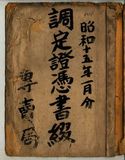 昭和十五年一月分
調定證憑書綴
專賣局